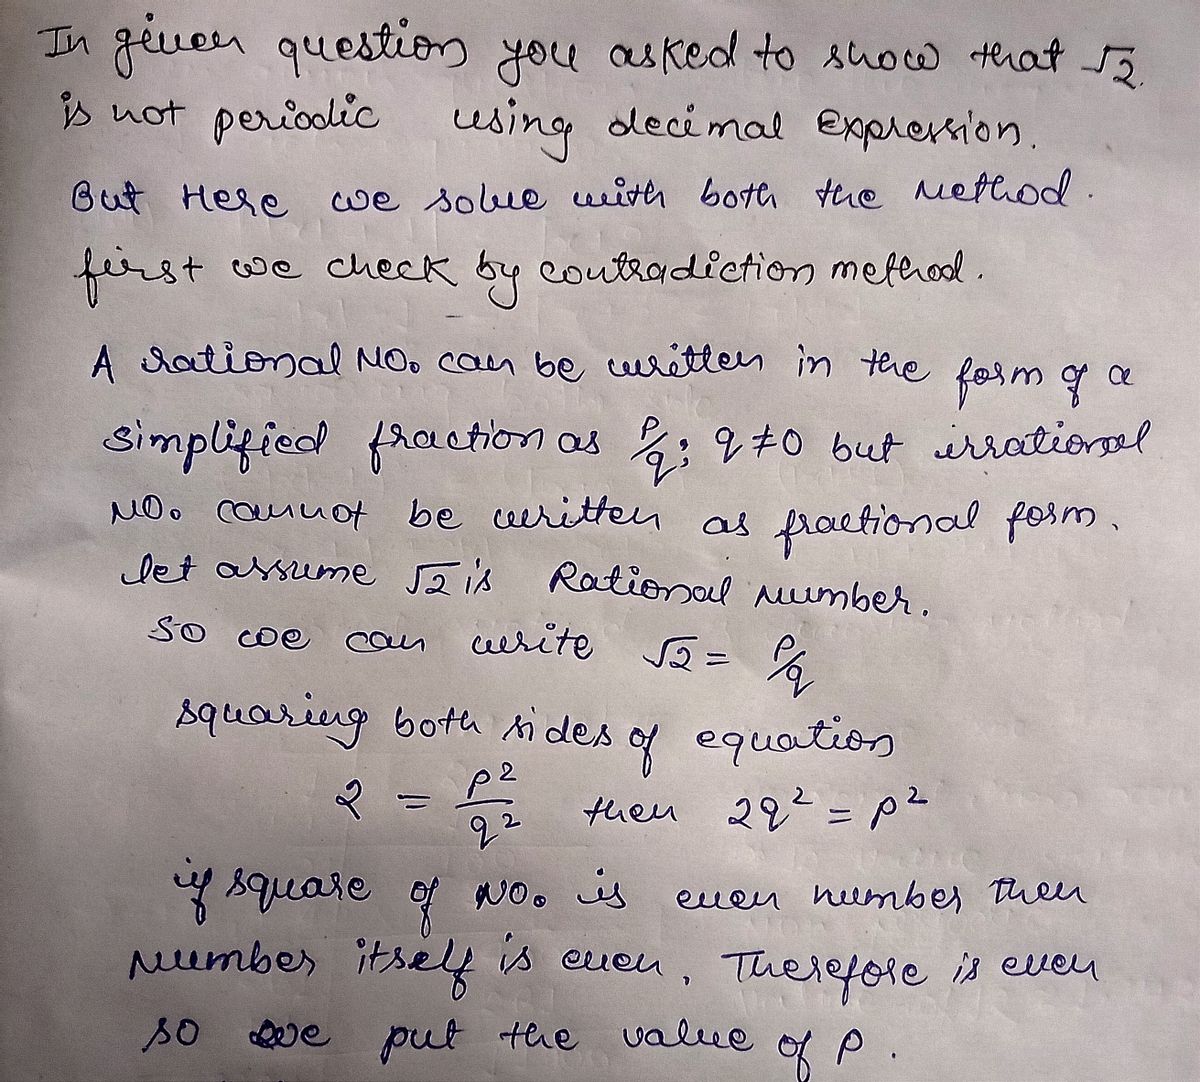 In given question you asked to show that √2.
is not periodic using decimal Expression.
But Here we solve with both the Method.
first we check by contradiction method.
A rational NO. can be written in the form of a
simplified fraction as p/q; q≠0 but irrational
NO. cannot be written as fractional form.
let assume √2 is Rational Number.
so we can write √2 = p/q
squaring both sides of equation
2 = p²/q² then 2q² = p²
if square of NO. is even number then
Number itself is even. Therefore is even
so we put the value of p.